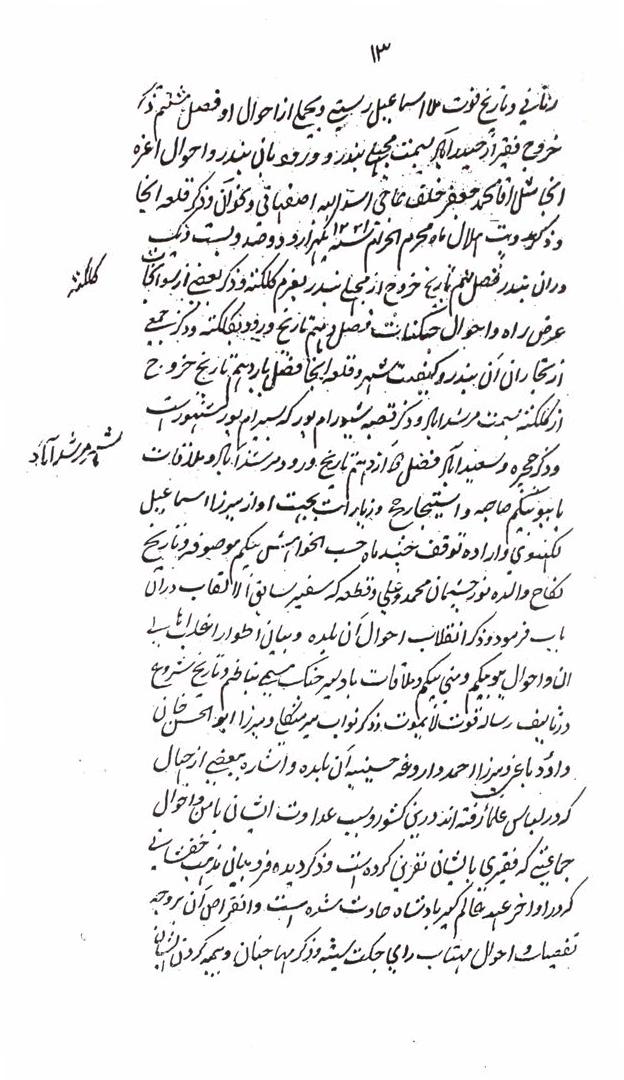 ۱۳
ربانی و تاریخ فوت ملا اسماعیل و مجملی از احوال او فصل هشتم ذکر
خروج فقیر از حیدرآباد بسمت مچهلی بندر و ورود بان بندر و احوال اعزه
انجا مثل اقا محمد جعفر خلف حاجی اسدالله اصفهانی و ذکر قلعه انجا
و ذکر رویت هلال ماه محرم الحرام سنه ۱۲۲۱ یکهزار و دوصد و بست و یک
دران بندر فصل نهم تاریخ خروج از مچهلی بندر بعزم کلکته و ذکر بعضی از سوانحات
کلکته
عرض راه و احوال فصل دهم تاریخ ورود بکلکته و ذکر جمعی
از تجاران آن بندر و کیفیت شهر و قلعه انجا فصل یازدهم تاریخ خروج
از کلکته بسمت مرشداباد و ذکر قصبه شیورام پور که سیرام پور مشهور است
شهر مرشدآباد
و ذکر حجره و سعیداباد فصل دوازدهم تاریخ ورود مرشداباد و ملاقات
با ببو بیگم صاحبه و استیجار حج و زیارات بجهت او از میرزا اسماعیل
لکهنوی و اراده توقف چند ماه حسب الخواهش بیگم موصوفه و تاریخ
نکاح والده نورچشمان محمد و علی و قطعه که سفیر سابق الالقاب دران
باب فرمود و ذکر انقلاب احوال آن بلده و بیان اطوار اغلب اهالی
ان و احوال ببو بیگم و منی بیگم و ملاقات با دبیر جنگ و تاریخ شروع
در تالیف رساله قوت لایموت و ذکر نواب میر منگلی و میرزا ابوالحسن خان
و میرزا احمد داروغه حسینیه آن بلده و اشاره ببعضی از جهال
که در لباس علما رفته اند درین کشور و سبب عداوت ایشان با من و احوال
جماعتی که فقیری بایشان نفرین کرده است و ذکر
که در اواخر عهد عالم گیر بادشاه حادث شده است و انقراض آن بوجه
تقصیرات و احوال مهتاب رای جگت سیته و ذکر مهاجنان و بیمه کردن ایشان